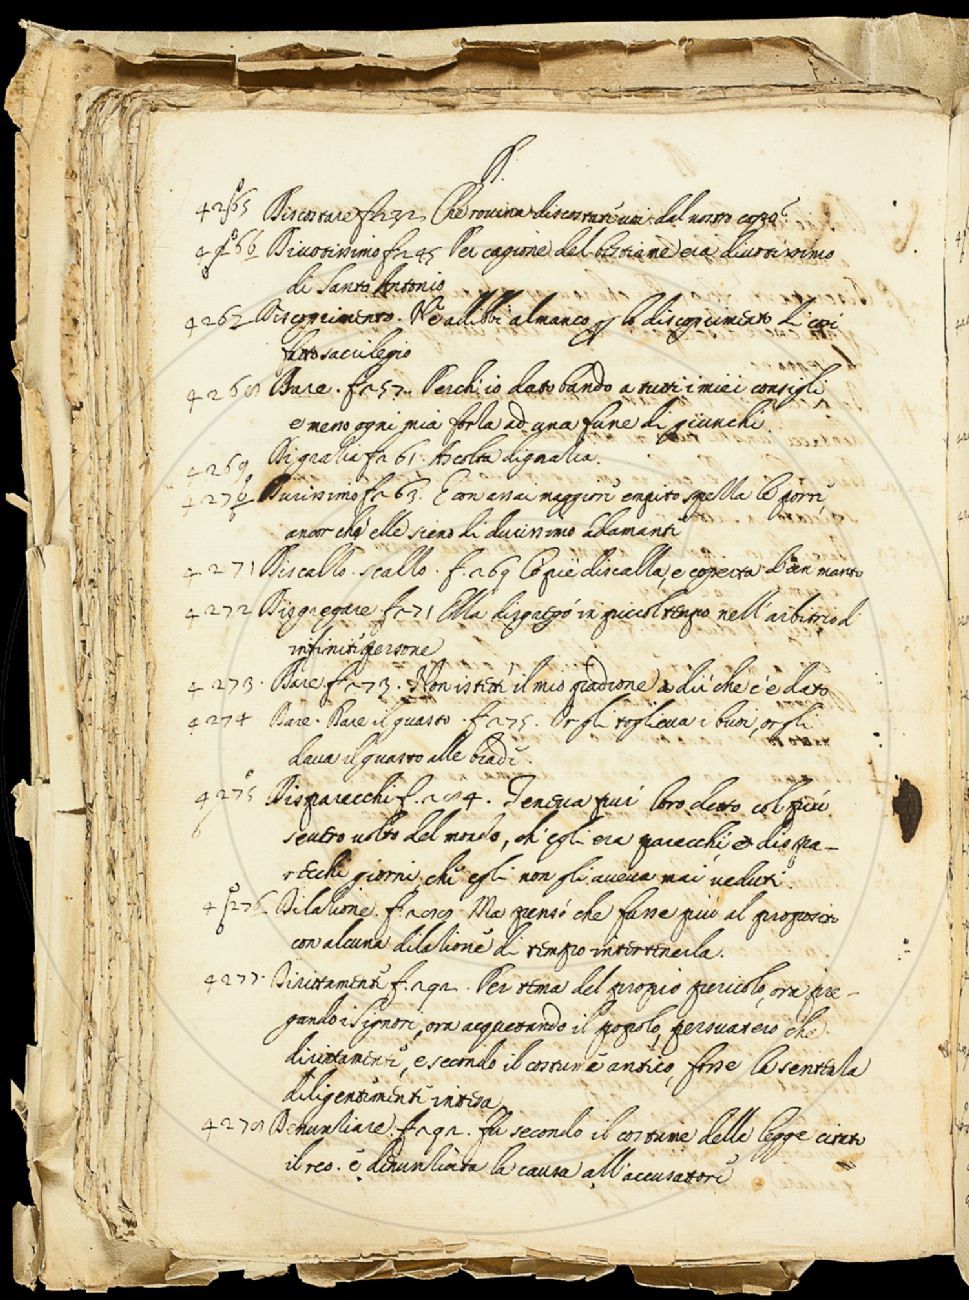 D.
4265 Discostare f. 232 Che rovina discostarvi dal nostro
4266 Divotissimo f. 245 Per cagione del bestiame era divotissimo
di Santo Antonio
4267 Discoprimento. N'ebbi almanco lo discoprimento di così
fatto sacrilegio
4268 Dare. f. 257. Perch'io dato bando a tutti i miei consigli
e messo ogni mia forza ad una fune di giunchi.
4269 Dignalia f. 261. Ascolta dignalia.
4270 Durissimo f. 263. E con assai maggiore empito spezza le porte
ancor ch'elle sieno di durissimo adamante
4271 Discallo. scallo. f. 269 discalza, e coperta d'un manto
4272 Disgregare f. 271 Ella disgregò in picciol tempo nell'arbitrio d
infinite persone
4273. Dare f. 273. Non istette il mio padrone a dir che c'è dato
4274 Dare. Dare il guasto. f. 275. Or gli toglieva i buoi, or gli
dava il guasto alle biade.
4275 Disparecchi f. 284. Teneva pur loro detto col più
severo volto del mondo, ch'egli era parecchi, e dispa-
recchi giorni, che egli non gli aveva mai veduti
4276 Dilazione. f. 289 Ma pensò che fusse più al proposito
con alcuna dilazione di tempo intertenerla.
4277. Dirittamente f. 292. Per tema del proprio pericolo, ora pre-
gando i Signori, ora acquetando il popolo, persuasero che
dirittamente, e secondo il costume antico, fosse la sentenza
diligentemente intesa
4278 Denunziare. f. 292. Fu secondo il costume delle legge citato
il reo. e dinunziata la causa all'accusatore